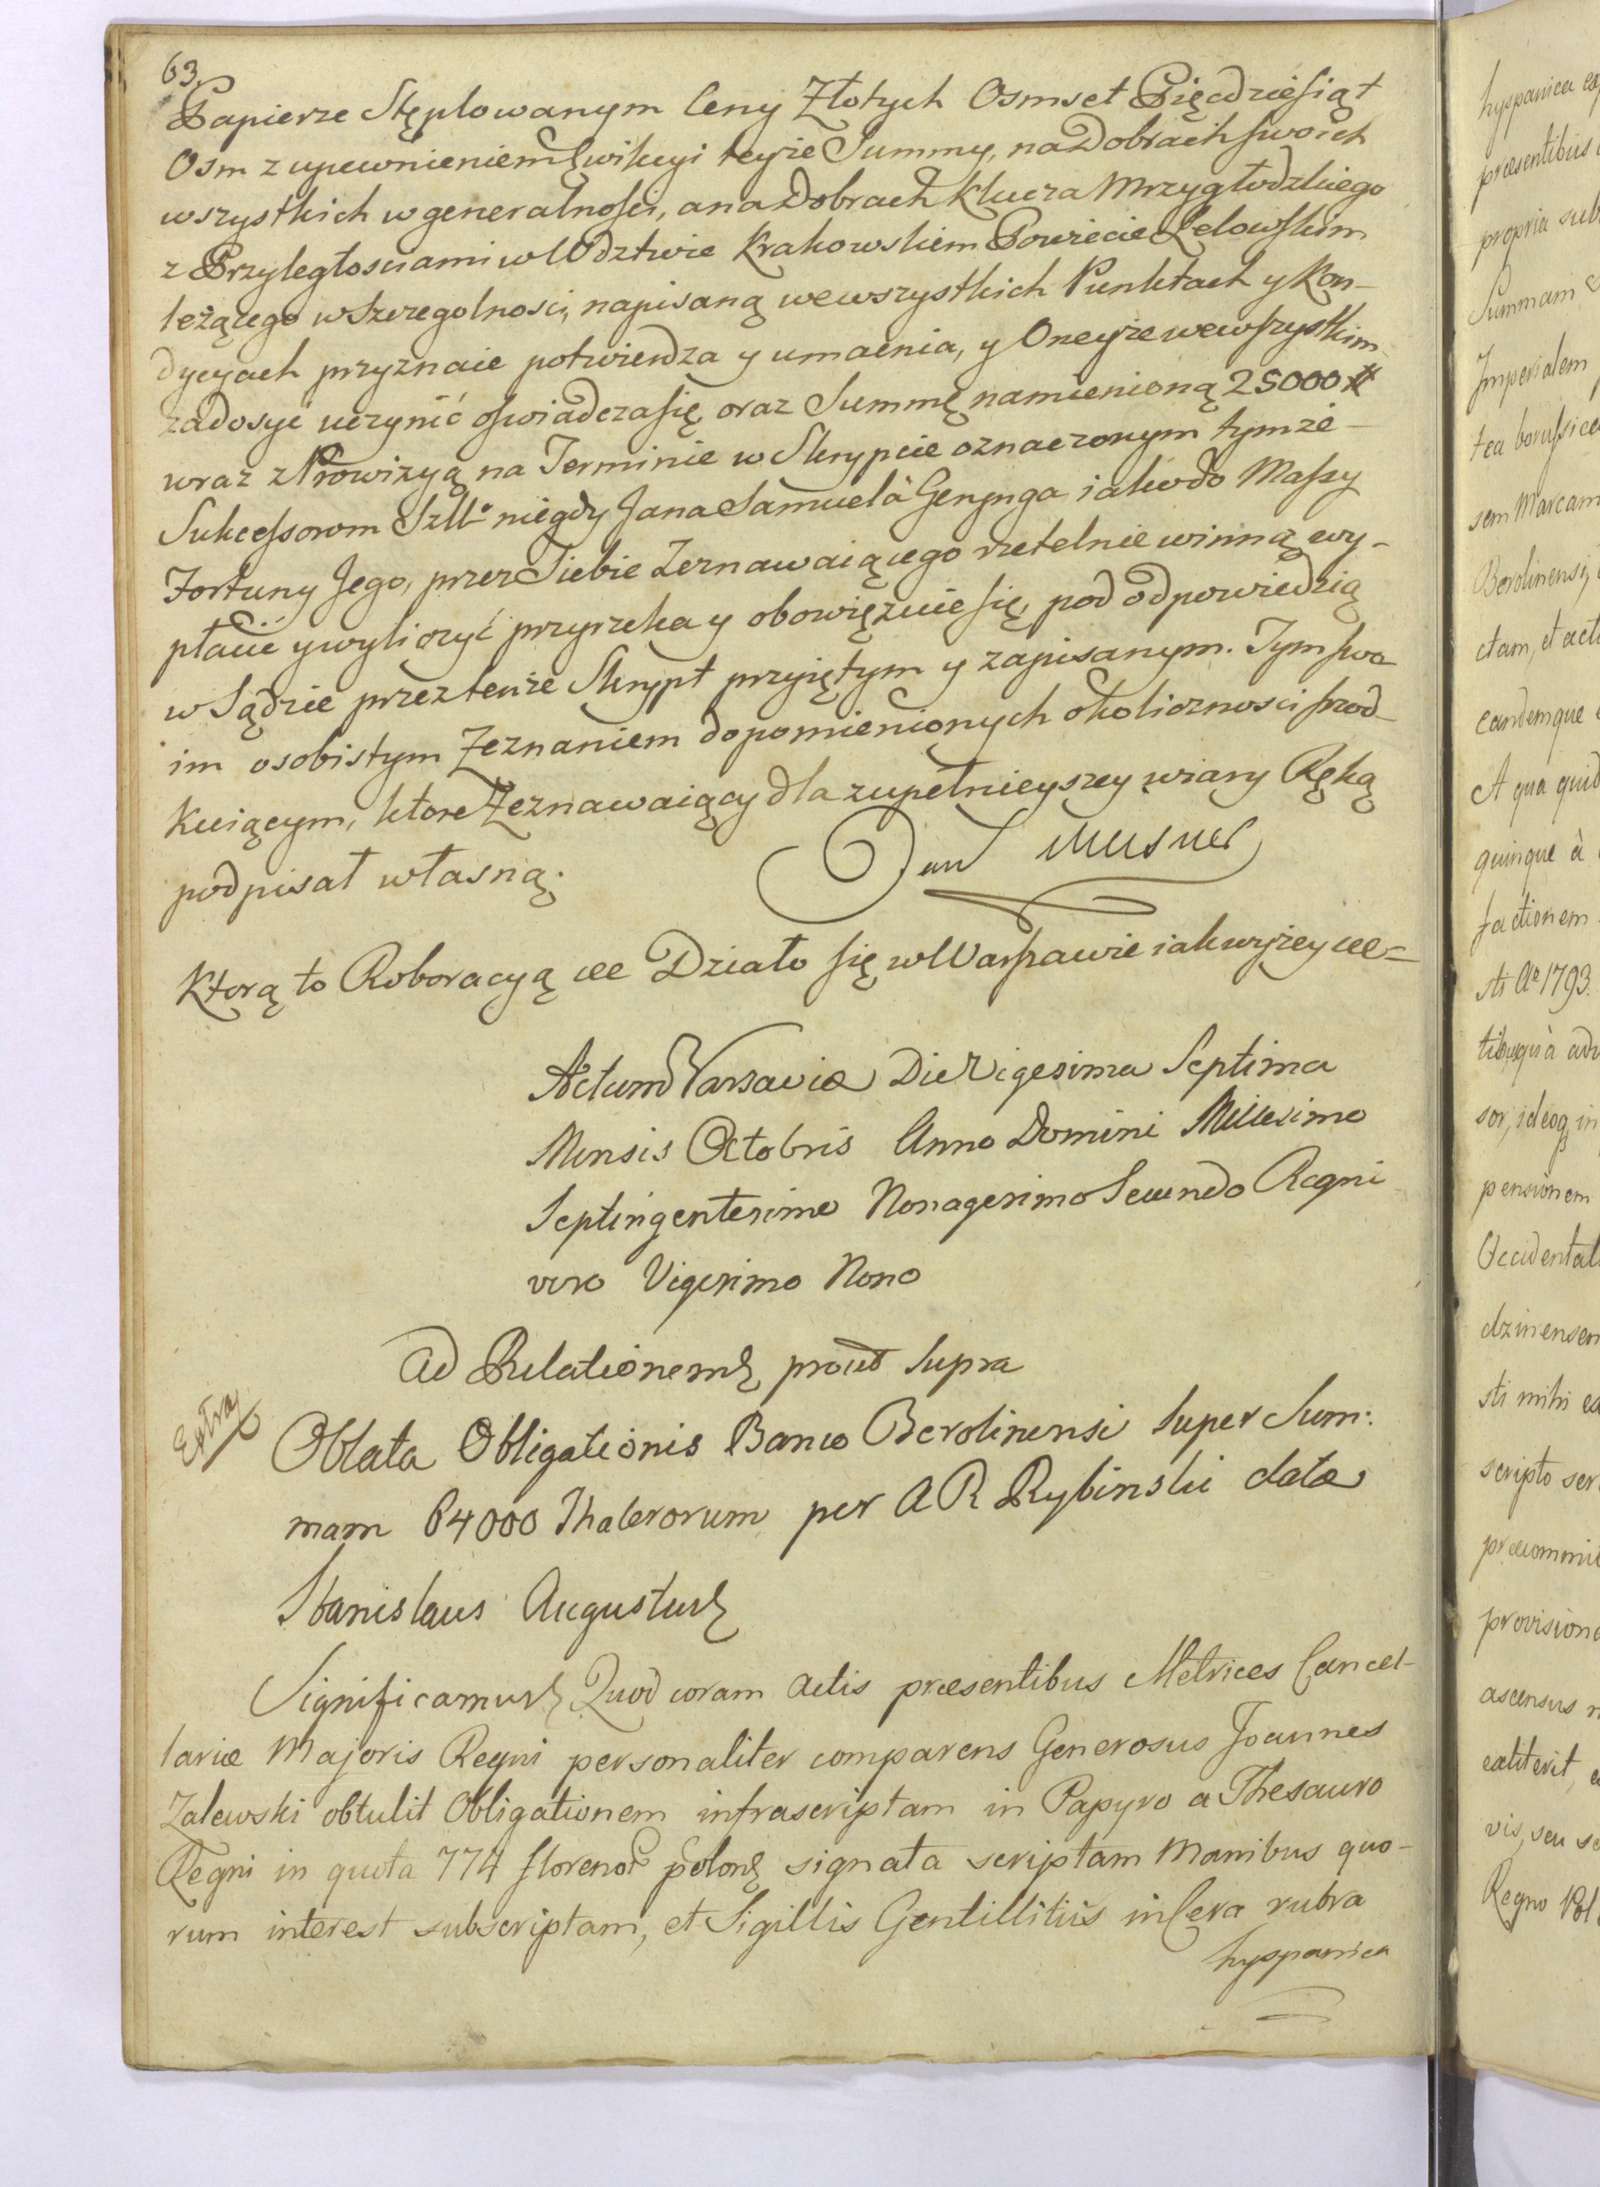 63.
Papierze Stęplowanym Ceny Złotych Osmset Pięcdziesiąt
Osm z upewnieniem Ewikcyi teyże Summy, na Dobrach swoich
wszystkich w generalnosci, a na Dobrach Klucza Mrzygłodzkiego
z Przyległosciami w Wdztwie Krakowskiem Powiecie Lelowskim
leżącego w Szczegolnosci, napisaną we wszystkich Punktach y Kon-
dycyach przyznaie potwierdza y umacnia, y Oneyże we wszystkim
zadosyć uczynić oswiadcza się, oraz Summę namienioną 25000 #
wraz z Prowizyą na Terminie w Skrypcie oznaczonym tymże
Sukcessorom Szll° niegdy Jana Samuela Gerynga iako do Massy
Fortuny Jego, przez Siebie Zeznawaiącego rzetelnie winną wy-
płacić y wyliczyć przyrzeka y obowięzuie się, pod odpowiedzią
w Sądzie przez tenże Skrypt przyiętym y zapisanym. Tym swo-
im osobistym Zeznaniem dopomienionych okolicznosci srod-
kuiącym, ktore Zeznawaiący dla zupełnieyszey wiary Ręką
podpisał własną.
Jan Meisner
Ktorą to Roboracyą ee Działo się w Warszawie iak wyżey ee=
Actum Varsaviæ Die Vigesima Septima
Mensis Octobris Anno Domini Millesimo
Septingentesimo Nonagesimo Secundo Regni
vero Vigesimo Nono
Ad Relationem prout Supra
Extra
Oblata Obligationis Banco Berolinensi super Sum:
mam 64000 Thalerorum per A R Rybinski datæ
Stanislaus Augustus
Significamus Quod coram Actis præsentibus Metrices Cancel-
lariæ Majoris Regni personaliter comparens Generosus Joannes
Zalewski obtulit Obligationem infrascriptam in Papyro a Thesauro
Regni in quota 774 floreno# polon signata scriptam Manibus quo-
rum interest subscriptam, et Sigillis Gentillitiis in Cera rubra
hyspanica
hyspanica
præsentibus
propria sub
Summam
Imperialem
tea borussica
sem Marcam
Berolinensi,
ctam, et
eandemque
A qua quid
quinque à
factionem
sti A° 1793.
sor, ideoq in
pensionem
Occidentali
dzinensem
sti mihi
scripto ser
præcommi
provisione
ascensus
extiterit,
vis, seu
Regno Pol